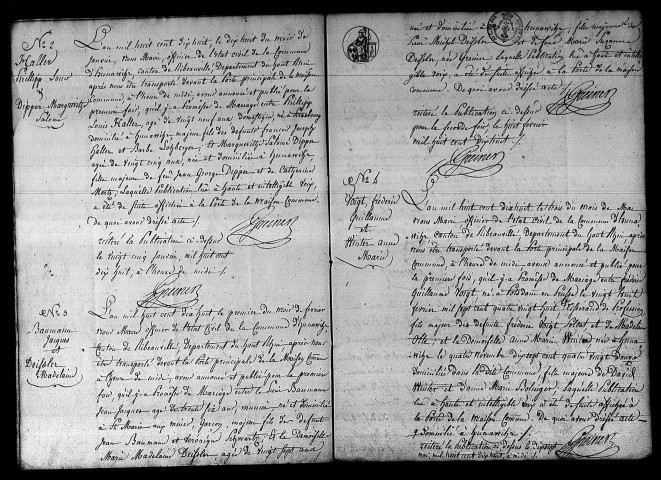 N° 2
Haller
Philipp Louis
&
Dipper Marguerithe
Salomé
L'an mil huit cent dix huit, le dix huit du mois de
janvier, nous Maire, officier de l'état civil de la Commune
d'hunawihr, Canton de Ribeauvillé, Département du haut Rhin
après nous être transporté devant la porte principale de la maison
Commune, à l'heure de midi, avons annoncé et publié pour la
première fois, qu'il y a promesse de Mariage entre Philipp
Louis Haller, agé de vingt neuf ans, domestique, né à Strasbourg
domicilié à hunawihr, majeur fils des defunts françois Joseph
Haller et Barbe & Marguerithe Salomé Dipper
agée de vingt cinq ans, née et domiciliée à hunawihr,
fille majeure de feu Jean George Dipper et de Catherine
Mertz; laquelle publication lue à haute et intelligible voix,
a été de suite affichée à la porte de la maison Commune.
de quoi avons dressé acte.
réitéré la publication ci-dessus
le vingt cinq janvier, mil huit cent
dix huit, à l'heure de midi.
N° 3
Baumann
Jacques
&
Deissler
Madelaine
L'an mil huit cent dix huit le premier du mois de février
nous Maire officier de l'état Civil de la Commune d'hunawihr
Canton de Ribeauvillé, département du haut Rhin, après nous
être transporté devant la porte principale de la Maison Commune
à l'heure de midi, avons annoncé et publié pour la première
fois, qu'il y a promesse de Mariage entre le Sieur Baumann
Jean Jacques agé de trente six ans, né et domicilié
à Ste Marie aux mines, Garçon, majeur, fils des defunts
Jean Baumann et Véronique Schwartz, & la Demoiselle
Marie Madelaine Deissler agée de vingt sept ans
née et domiciliée à hunawihr, fille majeure de
feu Michel Deissler et de feue Marie
Deissler, née Grenier, laquelle publication lue à haute et intelli-
gible voix, a été de suite affichée à la porte de la maison
Commune. De quoi avons dressé acte.
réitéré la publication ci-dessus
pour la seconde fois, le huit février
mil huit cent dix huit.
N° 4
Voigt, fréderic
Guillaume
et
Winter anne
Marie
L'an mil huit cent dix huit le trois du mois de Mai
nous Maire officier de l'état Civil de la Commune d'huna-
wihr canton de Ribeauvillé, Département du haut Rhin, après
nous être transporté devant la porte principale de la Maison
Commune, à l'heure de midi avons annoncé et publié pour
la première fois, qu'il y a promesse de Mariage entre fréderic
Guillaume Voigt, né à Potsdam en Prusse le vingt huit
février mil sept cent quatre vingt huit, de Profession,
fils majeur des defunts fréderic Voigt, Soldat et de Madelaine
Otte, et la Demoiselle Anne Marie Winter née à huna-
wihr le quatre novembre dix sept cent quatre vingt douze
domiciliée dans ladite Commune, fille majeure de David
Winter et d'anne Marie laquelle publication
lue à haute et intelligible voix a été de suite affichée à
la porte de la maison Commune, de quoi avons dressé acte
& domicilié à hunawihr
réitéré la publication ci-dessus le dix sept
mai, mil huit cent dix huit, à midi.